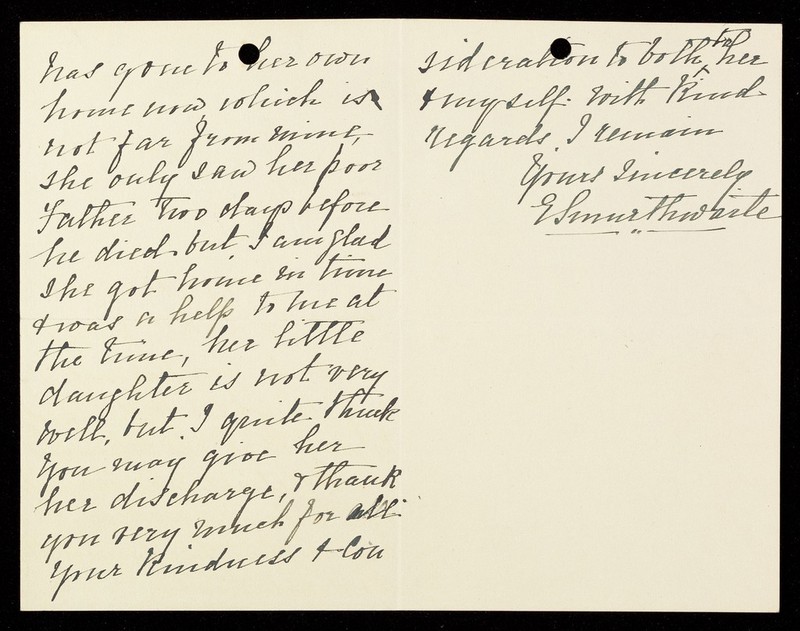 has gone to her own
home now, which is
not far from mine,
she only saw her poor
Father two days before
he died. but I am glad
she got home in time
& was a help to me at
the time, her little
daughter is not very
well, but I quite think
you may give her
her discharge, & thank
you very much for all
your kindness & Con
sideration to both to her
& myself. With Kind
regards. I remain
Yours Sincerely
E Smurthwaite